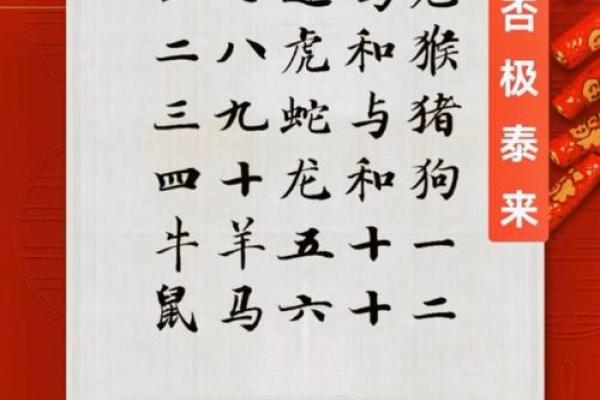 二八虎和猴
三九蛇与猪
四十龙和狗
牛羊五十一
鼠马六十二
否极泰来